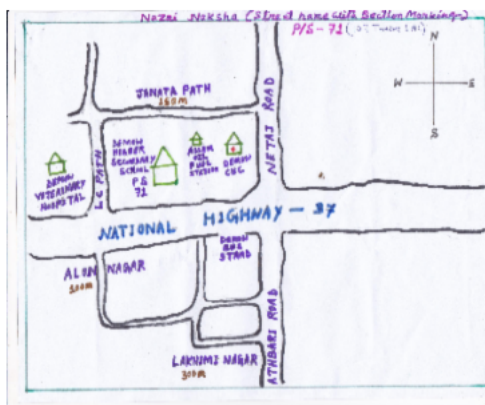 Nazri Naksha (Street name with Section Marking)
P/S - 71
N
W E
S
JANATA PATH
150m
NETAJI ROAD
L.G PATH
DEMOW
VETERINARY
HOSPITAL
DEMOW
HIGHER
SECONDARY
SCHOOL
PS
71
ASSAM
OIL
FUEL
STATION
DEMOW
CHC
NATIONAL HIGHWAY - 37
ALON NAGAR
200m
DEMOW
BUS
STAND
LAKHIMI NAGAR
300m
ATHBARI ROAD